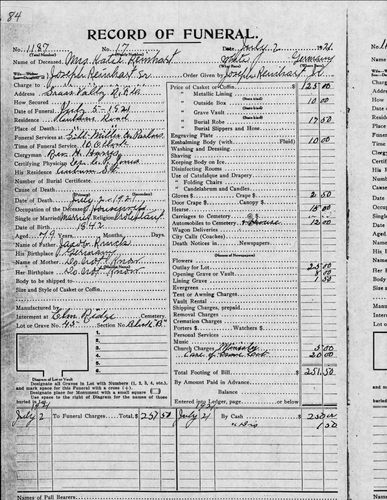 84
RECORD OF FUNERAL.
No. 1187 No. 17 Date, July 2 1921
(Total Number) (Yearly Number)
Name of Deceased Mrs. Katie Reinhart White Germany
Joseph Reinhart Sr Order Given by Joseph Reinhart Jr
Charge to
How Secured
Date of Funeral July 5-1921
Place of Death
Funeral Services at
Time of Funeral Service 10 O'clock
Clergyman Ben H.
Certifying Physician
His Residence
Number of Burial Certificate
Cause of Death
Date of Death July 2, 1921
Occupation of the Deceased Housewife
Single or Married Married Religion Protestant
Date of Birth 1842
Aged 79 Years Months Days
Name of Father Jacob
His Birthplace Germany
Name of Mother Do Not Know
Her Birthplace Do Not Know
Body to be shipped to
Size and Style of Casket or Coffin
Manufactured by
Interment at Elm Ridge Cemetery
Lot or Grave No. 45 Section No. Block "B"
Diagram of Lot or Vault
Designate all Graves in Lot with Numbers (1, 2, 3, 4, etc.), and mark space for this Funeral with a cross (+).
Designate place for Monument with a small square
Use space to right of Diagram for the names of those buried in Lot.
Price of Casket or Coffin $125.00
" Metallic Lining
" Outside Box 10.00
" Grave Vault
" Burial Robe 17.50
" Burial Slippers and Hose
Engraving Plate
Embalming Body (with Fluid) 10.00
Washing and Dressing
Shaving
Keeping Body on Ice
Disinfecting Rooms
Use of Catafalque and Drapery
" Folding Chairs
" Candelabrum and Candles
Gloves $ Crape $ 2.50
Door Crape Canopy $
Hearse 15.00
Carriages to Cemetery @ $
Automobiles to Cemetery 12.00
Wagon Deliveries
City Calls (Coaches)
Death Notices in Newspapers
(Names of Newspapers)
Flowers
Outlay for Lot 25.00
Opening Grave or Vault 8.00
Lining Grave 1.50
Evergreen
Tent or Awning Charges
Vault Rental
Shipping Charges, prepaid
Removal Charges
Cremation Charges
Porters $ Watchers $
Personal Services
Music
Church Charges, Minister 5.00
Care of Grave Lot 20.00
Total Footing of Bill $251.50
By Amount Paid in Advance
Balance
Entered into Ledger, page or below
1921 1921
July 2 To Funeral Charges Total, $ 251.50 July 21 By Cash $250.00
1.50
Names of Pall Bearers